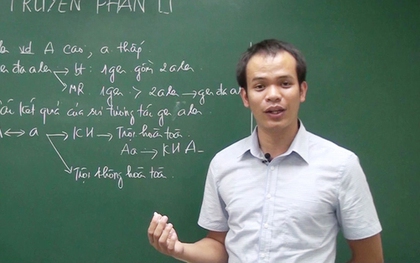 TRUYỀN PHÂN LI
vd A cao, a thấp
gen đa alen → bt: 1gen gồm 2alen
MR: 1gen > 2alen → gen đa al
kết quả của sự tương tác gen alen
↔ a → KH → Trội hoàn toàn
Aa → KH A_
Trội không hoàn toàn